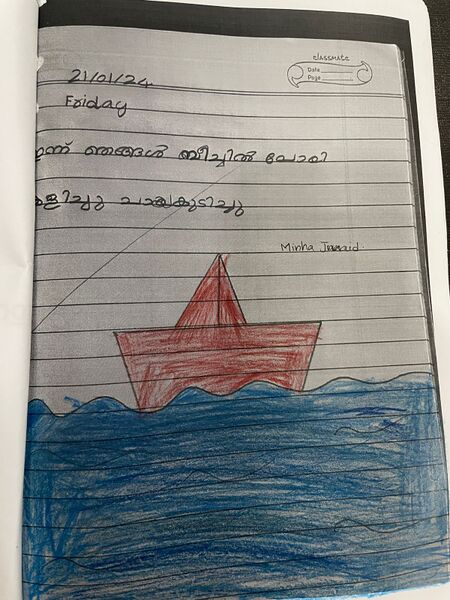 classmate
Date
Page
21/01/24
Friday
ഇന്ന് ഞങ്ങൾ ബീച്ചിൽ പോയി
കളിച്ചു ചായകുടിച്ചു
Minha